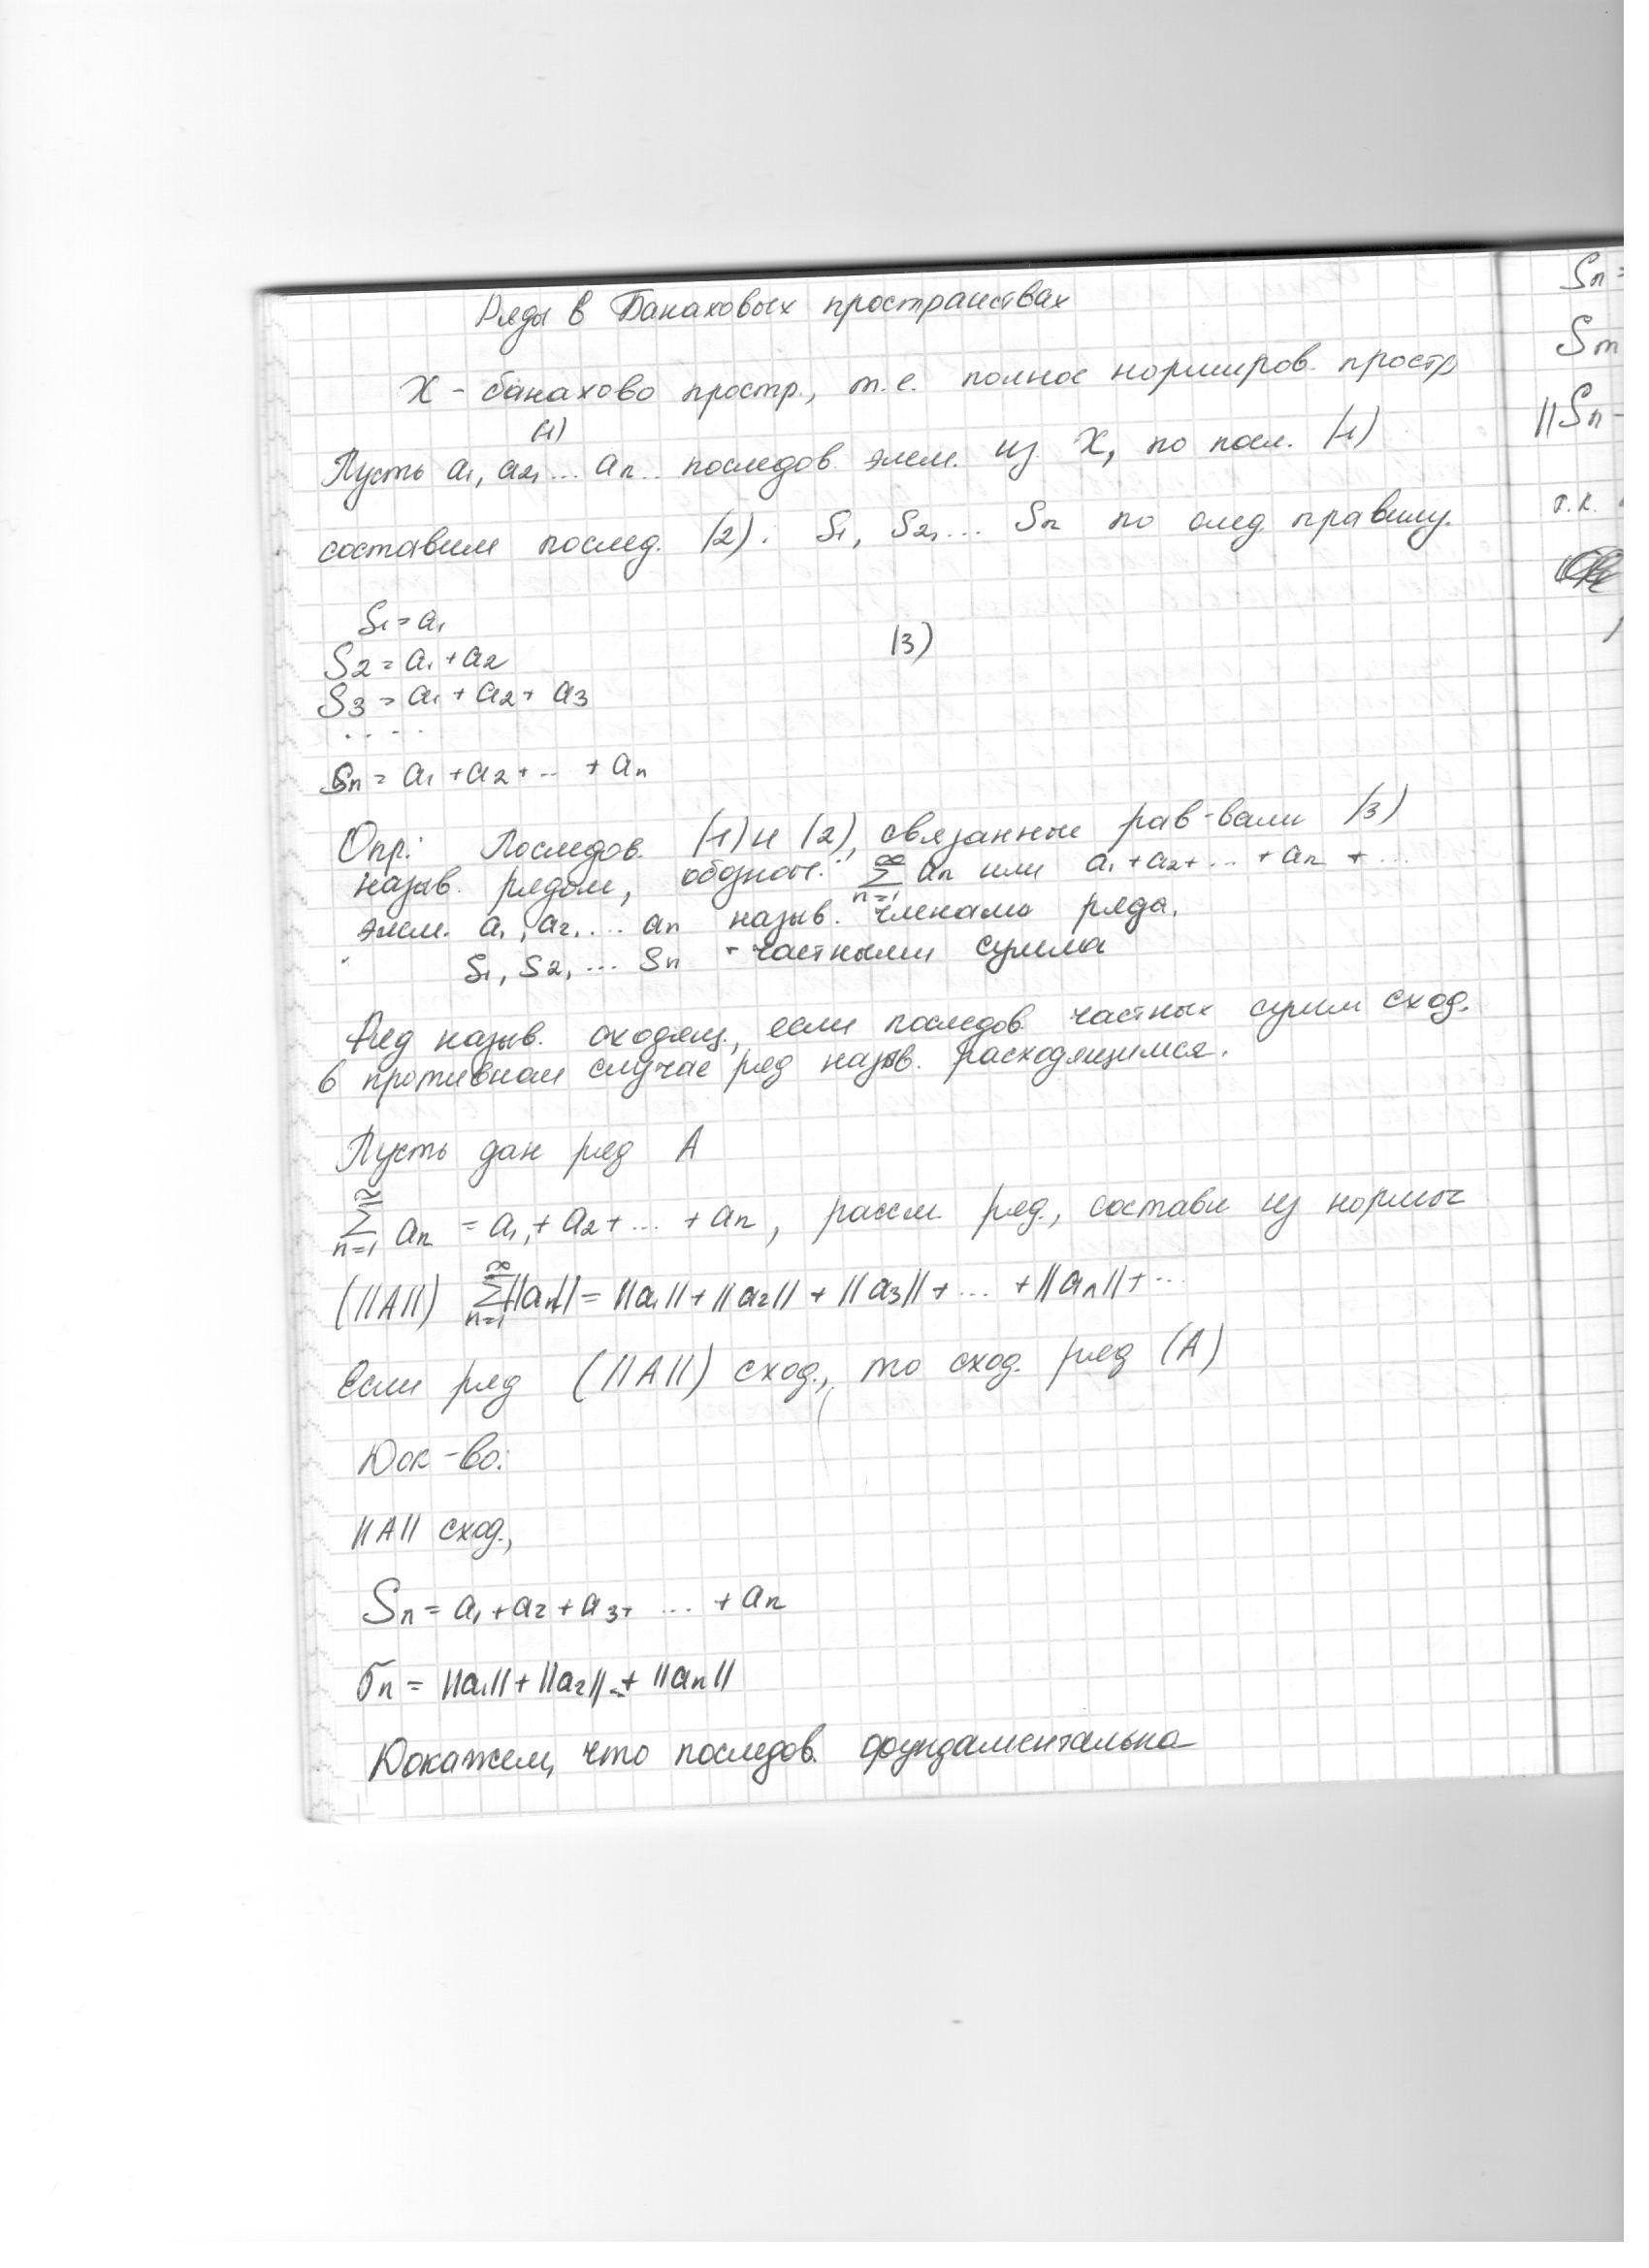 Ряды в Банаховых пространствах
X - банахово простр., т.е. полное нормиров. простр
(1)
Пусть a₁, a₂, ... aₙ .. последов. элем. из X, по посл. (1)
составим послед. (2). S₁, S₂, ... Sₙ по след. правилу.
S₁ = a₁
(3)
S₂ = a₁ + a₂
S₃ = a₁ + a₂ + a₃
. . . .
Sₙ = a₁ + a₂ + ... + aₙ
Опр: Последов. (1) и (2), связанные рав-вами (3)
назыв. рядом, обознач.: ∑_{n=1}^{∞} aₙ или a₁ + a₂ + ... + aₙ + ...
элем. a₁, a₂, ... aₙ назыв. членами ряда.
S₁, S₂, ... Sₙ - частными сумма
Ряд назыв. сходящ., если последов. частных сумм сход.
в противном случае ряд назыв. расходящимся.
Пусть дан ряд A
∑_{n=1}^{∞} aₙ = a₁ + a₂ + ... + aₙ, рассм. ряд, составл из нормы
(||A||) ∑_{n=1}^{∞} ||aₙ|| = ||a₁|| + ||a₂|| + ||a₃|| + ... + ||aₙ|| + ...
Если ряд (||A||) сход., то сход. ряд (A)
Док-во:
||A|| сход.,
Sₙ = a₁ + a₂ + a₃ + ... + aₙ
σₙ = ||a₁|| + ||a₂|| ..+ ||aₙ||
Докажем, что последов. фундаментальна
Sₙ =
Sₘ
||Sₙ -
т.к.